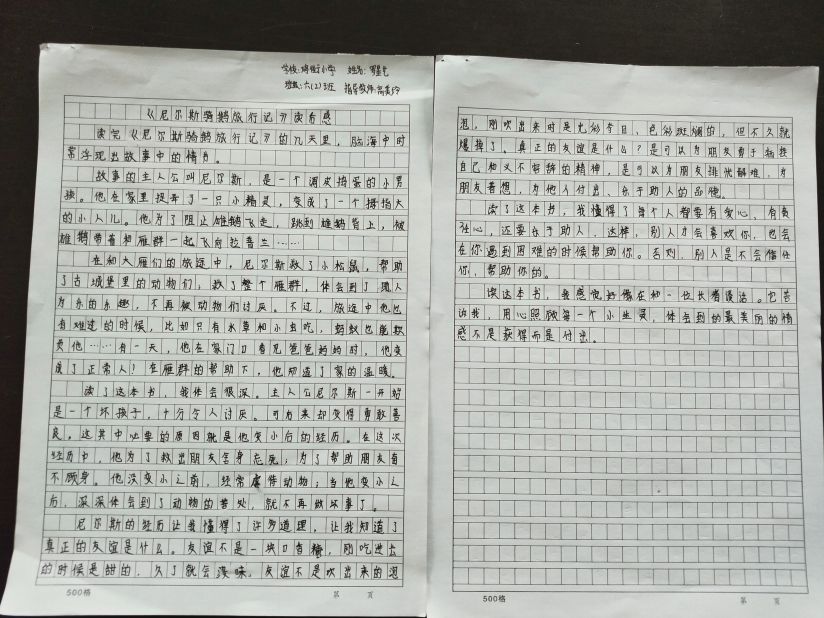 学校:埠街小学 姓名:罗星七
班级:六(2)班 指导教师:高美玲
《尼尔斯骑鹅旅行记》读有感
读完《尼尔斯骑鹅旅行记》的几天里,脑海中时
常浮现出故事中的情节。
故事的主人公叫尼尔斯,是一个调皮捣蛋的小男
孩。他在家里捉弄了一只小精灵,变成了一个拇指大
的小人儿。他为了阻止雄鹅飞走,跳到雄鹅背上,被
雄鹅带着和雁群一起飞向拉普兰……
在和大雁们的旅途中,尼尔斯救了小松鼠,帮助
了古城堡里的动物们,救了整个雁群。体会到了助人
为乐的乐趣,不再被动物们讨厌。不过,旅途中他也
有难过的时候,比如只有水草和小虫吃,蚂蚁也能欺
负他……有一天,他在家门口看见爸爸妈妈时,他变
成了正常人?在雁群的帮助下,他知道了家的温暖。
读了这本书,我体会很深。主人公尼尔斯一开始
是一个坏孩子,十分令人讨厌。可为来却变得勇敢善
良。这其中必要的原因就是他变小后的经历。在这次
经历中,他为了救出朋友舍身忘死;为了帮助朋友奋
不顾身。他没变小之前,经常虐待动物;当他变小人
后,深深体会到了动物的苦处,就不再做坏事了。
尼尔斯的经历让我懂得了许多道理,让我知道了
真正的友谊是什么。友谊不是一块口香糖,刚吃进去
的时候是甜的,久了就会没味。友谊不是吹出来的泡
泡,刚吹出来时是光彩夺目、色彩斑斓的,但不久就
爆掉了。真正的友谊是什么?是可以为朋友勇于牺牲
自己和义不容辞的精神,是可以为朋友排忧解难,为
朋友着想,为他人付出、乐于助人的品德。
读了这本书,我懂得了每个人都要有爱心、有责
任心,还要乐于助人,这样,别人才会喜欢你,也会
在你遇到困难的时候帮助你。否则,别人是不会信任
你,帮助你的。
读这本书,我感觉好像在和一位长者谈话。它告
诉我,用心照顾每一个小生灵,体会到的最美历的情
感不是获得而是付出。
500格
第 页
500格
第 页